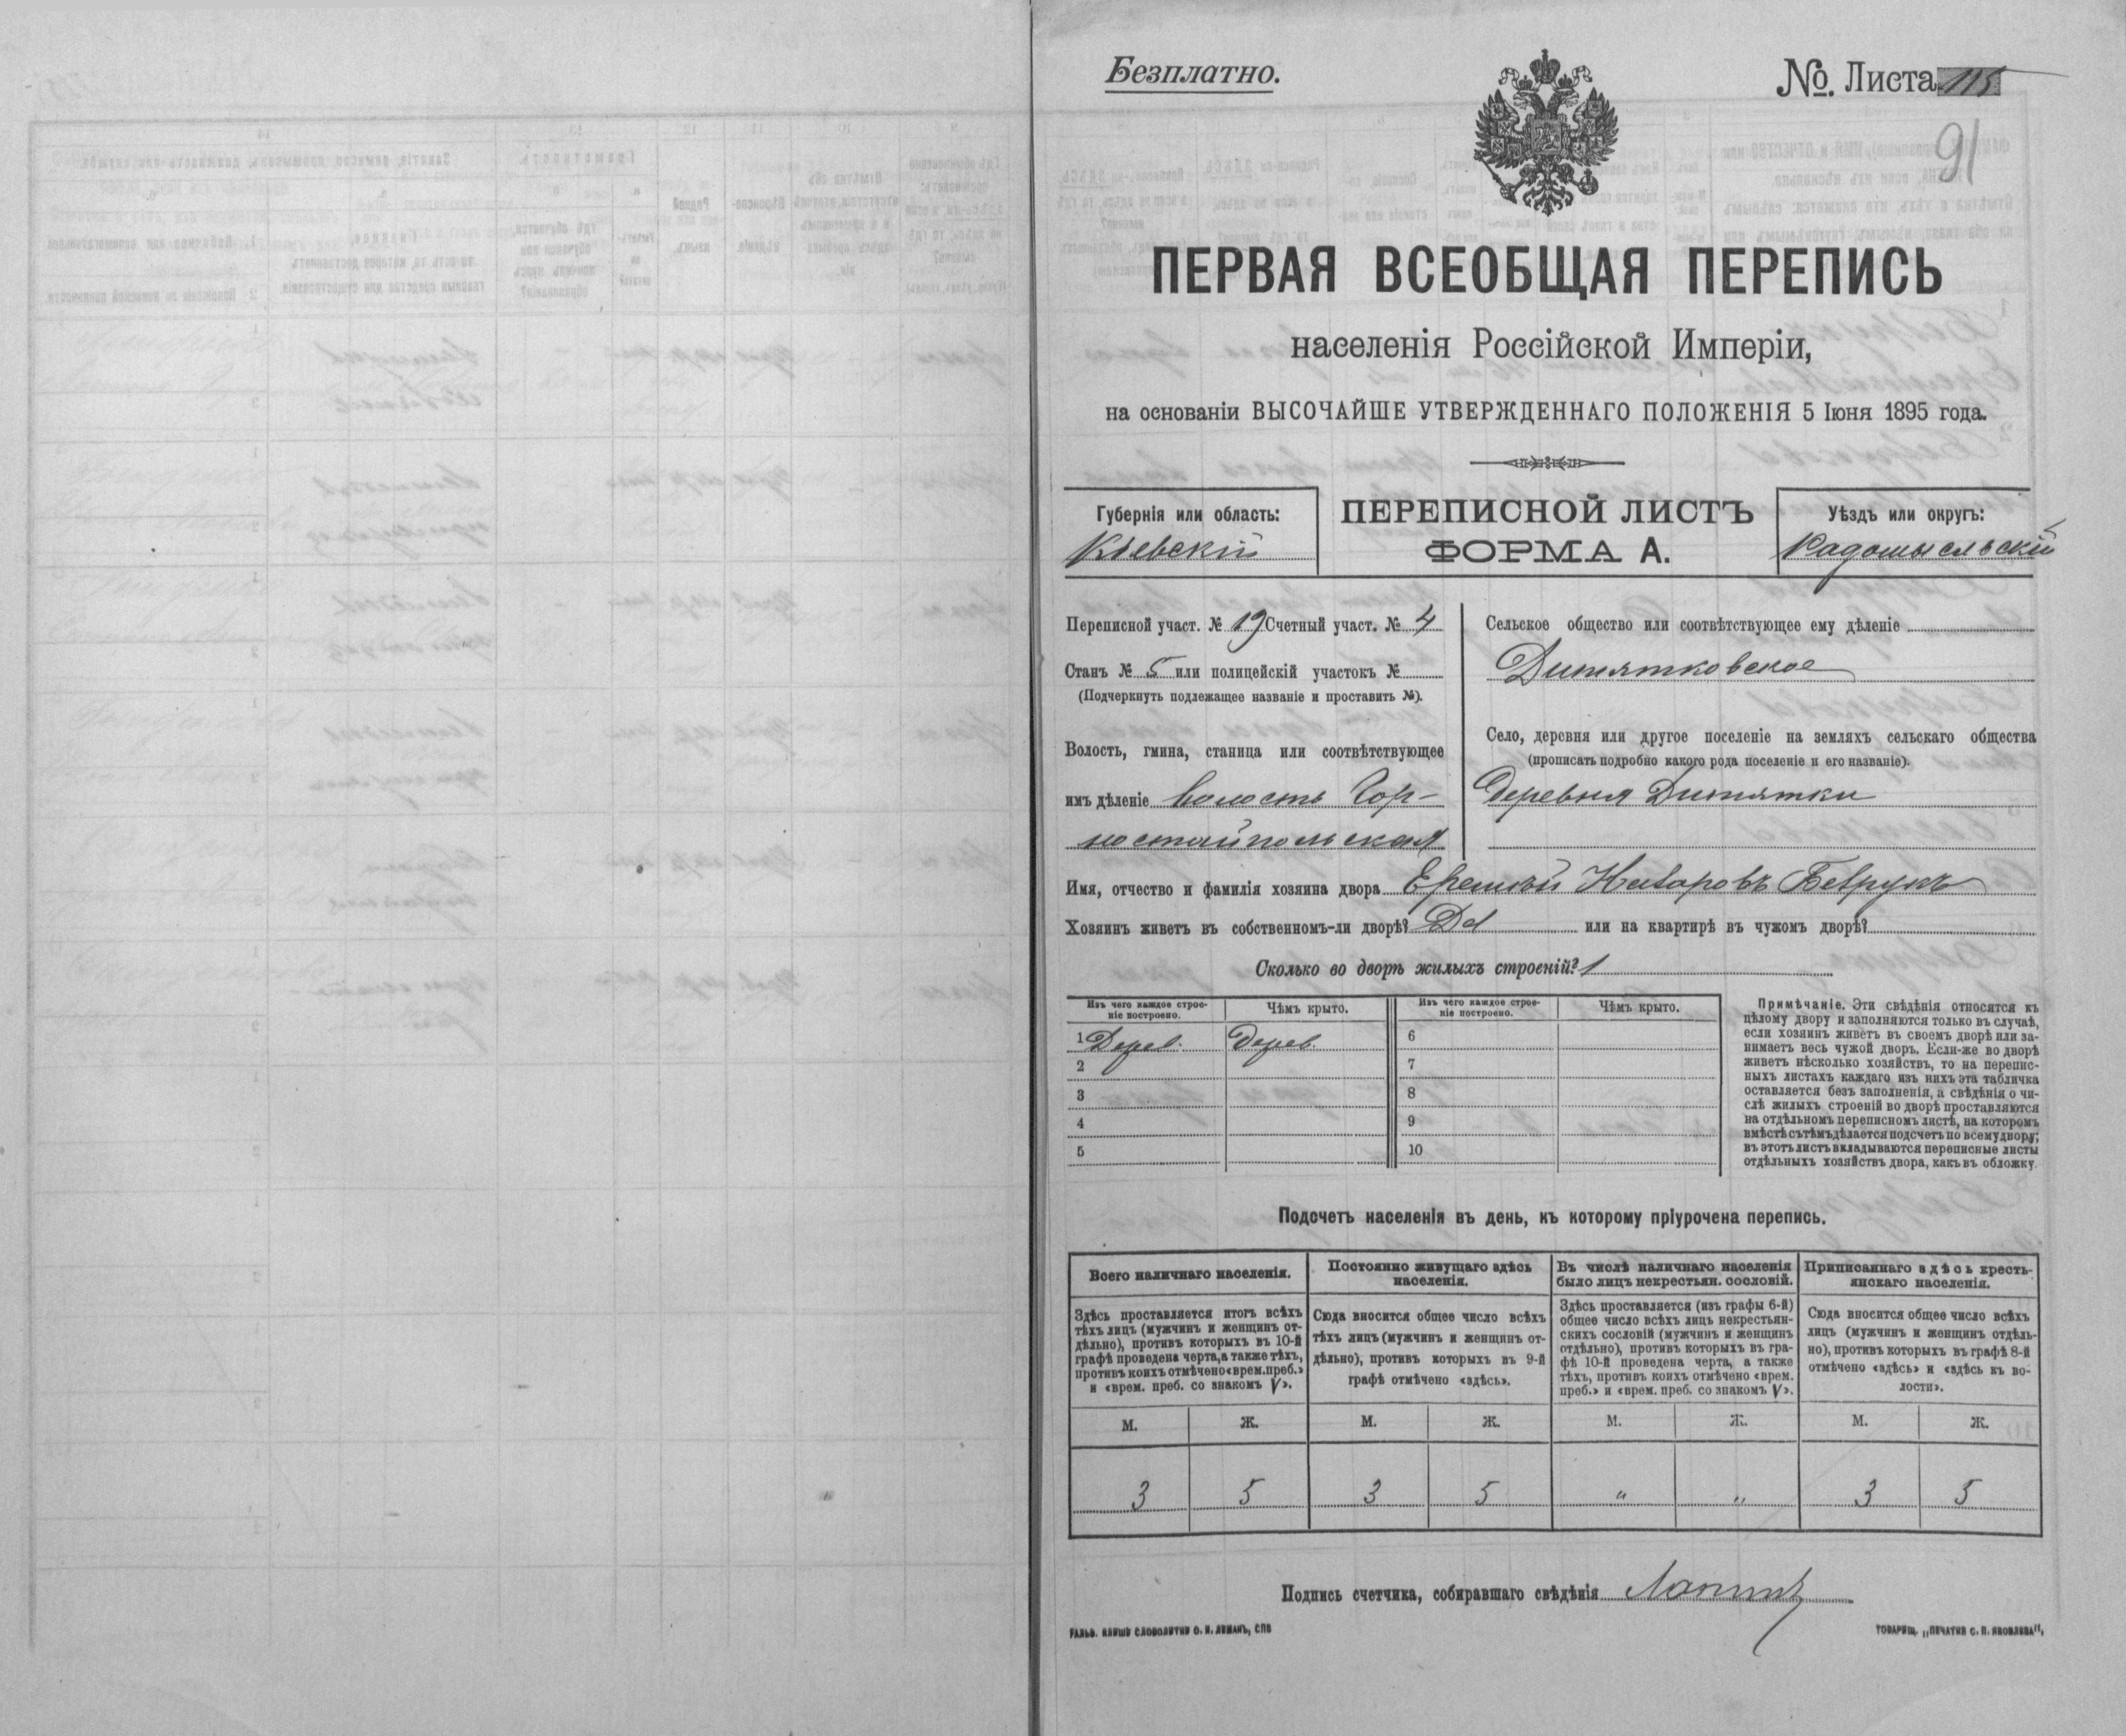 Безплатно.
№. Листа 115
91
ПЕРВАЯ ВСЕОБЩАЯ ПЕРЕПИСЬ
населенія Россійской Имперіи,
на основаніи ВЫСОЧАЙШЕ УТВЕРЖДЕННАГО ПОЛОЖЕНІЯ 5 Іюня 1895 года.
Губернія или область:
Кіевскій
ПЕРЕПИСНОЙ ЛИСТЪ
ФОРМА А.
Уѣздъ или округъ:
Радомысльскій
Переписной участ. № 19 Счетный участ. № 4
Станъ № 5 или полицейскій участокъ №
(Подчеркнуть подлежащее названіе и проставить №).
Волость, гмина, станица или соотвѣтствующее
имъ дѣленіе волость Гор-
ностайпольская
Сельское общество или соотвѣтствующее ему дѣленіе
Дитятковское
Село, деревня или другое поселеніе на земляхъ сельскаго общества
(прописать подробно какого рода поселеніе и его названіе).
Деревня Дитятки
Имя, отчество и фамилія хозяина двора Еремѣй Назаровъ Бовтрукъ
Хозяинъ живетъ въ собственномъ-ли дворѣ? Да или на квартирѣ въ чужомъ дворѣ?
Сколько во дворѣ жилыхъ строеній? 1
Изъ чего каждое строе-
ніе построено.
Чѣмъ крыто.
Изъ чего каждое строе-
ніе построено.
Чѣмъ крыто.
1 Дерев. Дерев. 6
2 7
3 8
4 9
5 10
Примѣчаніе. Эти свѣдѣнія относятся къ
цѣлому двору и заполняются только въ случаѣ,
если хозяинъ живетъ въ своемъ дворѣ или за-
нимаетъ весь чужой дворъ. Если-же во дворѣ
живетъ нѣсколько хозяйствъ, то на перепис-
ныхъ листахъ каждаго изъ нихъ эта табличка
оставляется безъ заполненія, а свѣдѣнія о чи-
слѣ жилыхъ строеній во дворѣ проставляются
на отдѣльномъ переписномъ листѣ, на которомъ
вмѣстѣ съ тѣмъ дѣлается подсчетъ по всему двору;
въ этотъ листъ вкладываются переписные листы
отдѣльныхъ хозяйствъ двора, какъ въ обложку.
Подсчетъ населенія въ день, къ которому пріурочена перепись.
Всего наличнаго населенія.
Здѣсь проставляется итогъ всѣхъ
тѣхъ лицъ (мужчинъ и женщинъ от-
дѣльно), противъ которыхъ въ 10-й
графѣ проведена черта, а также тѣхъ,
противъ коихъ отмѣчено «врем. преб.»
и «врем. преб. со знакомъ V».
Постоянно живущаго здѣсь
населенія.
Сюда вносится общее число всѣхъ
тѣхъ лицъ (мужчинъ и женщинъ от-
дѣльно), противъ которыхъ въ 9-й
графѣ отмѣчено «здѣсь».
Въ числѣ наличнаго населенія
было лицъ некрестьян. сословій.
Здѣсь проставляется (изъ графы 6-й)
общее число всѣхъ лицъ некрестьян-
скихъ сословій (мужчинъ и женщинъ
отдѣльно), противъ которыхъ въ гра-
фѣ 10-й проведена черта, а также
тѣхъ, противъ коихъ отмѣчено «врем.
преб.» и «врем. преб. со знакомъ V».
Приписаннаго здѣсь кресть-
янскаго населенія.
Сюда вносится общее число всѣхъ
лицъ (мужчинъ и женщинъ отдѣль-
но), противъ которыхъ въ графѣ 8-й
отмѣчено «здѣсь» и «здѣсь къ во-
лости».
М. Ж. М. Ж. М. Ж. М. Ж.
3 5 3 5 " " 3 5
Подпись счетчика, собиравшаго свѣдѣнія
ГАЛЬВ. КЛИШЕ СЛОВОЛИТНИ О. И. ЛЕМАНЪ, СПБ
ТОВАРИЩ. „ПЕЧАТНЯ С. П. ЯКОВЛЕВА",